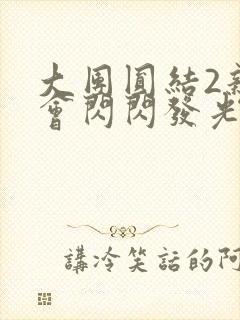 大團圓結2
會閃閃發光
講冷笑話的阿